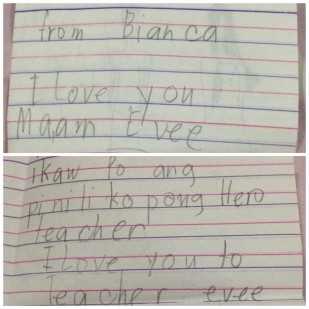 from Bianca
I Love you
Maam Evee
ikaw Po ang
pinili ko pong Hero
Teacher
I Love you to
teacher evee